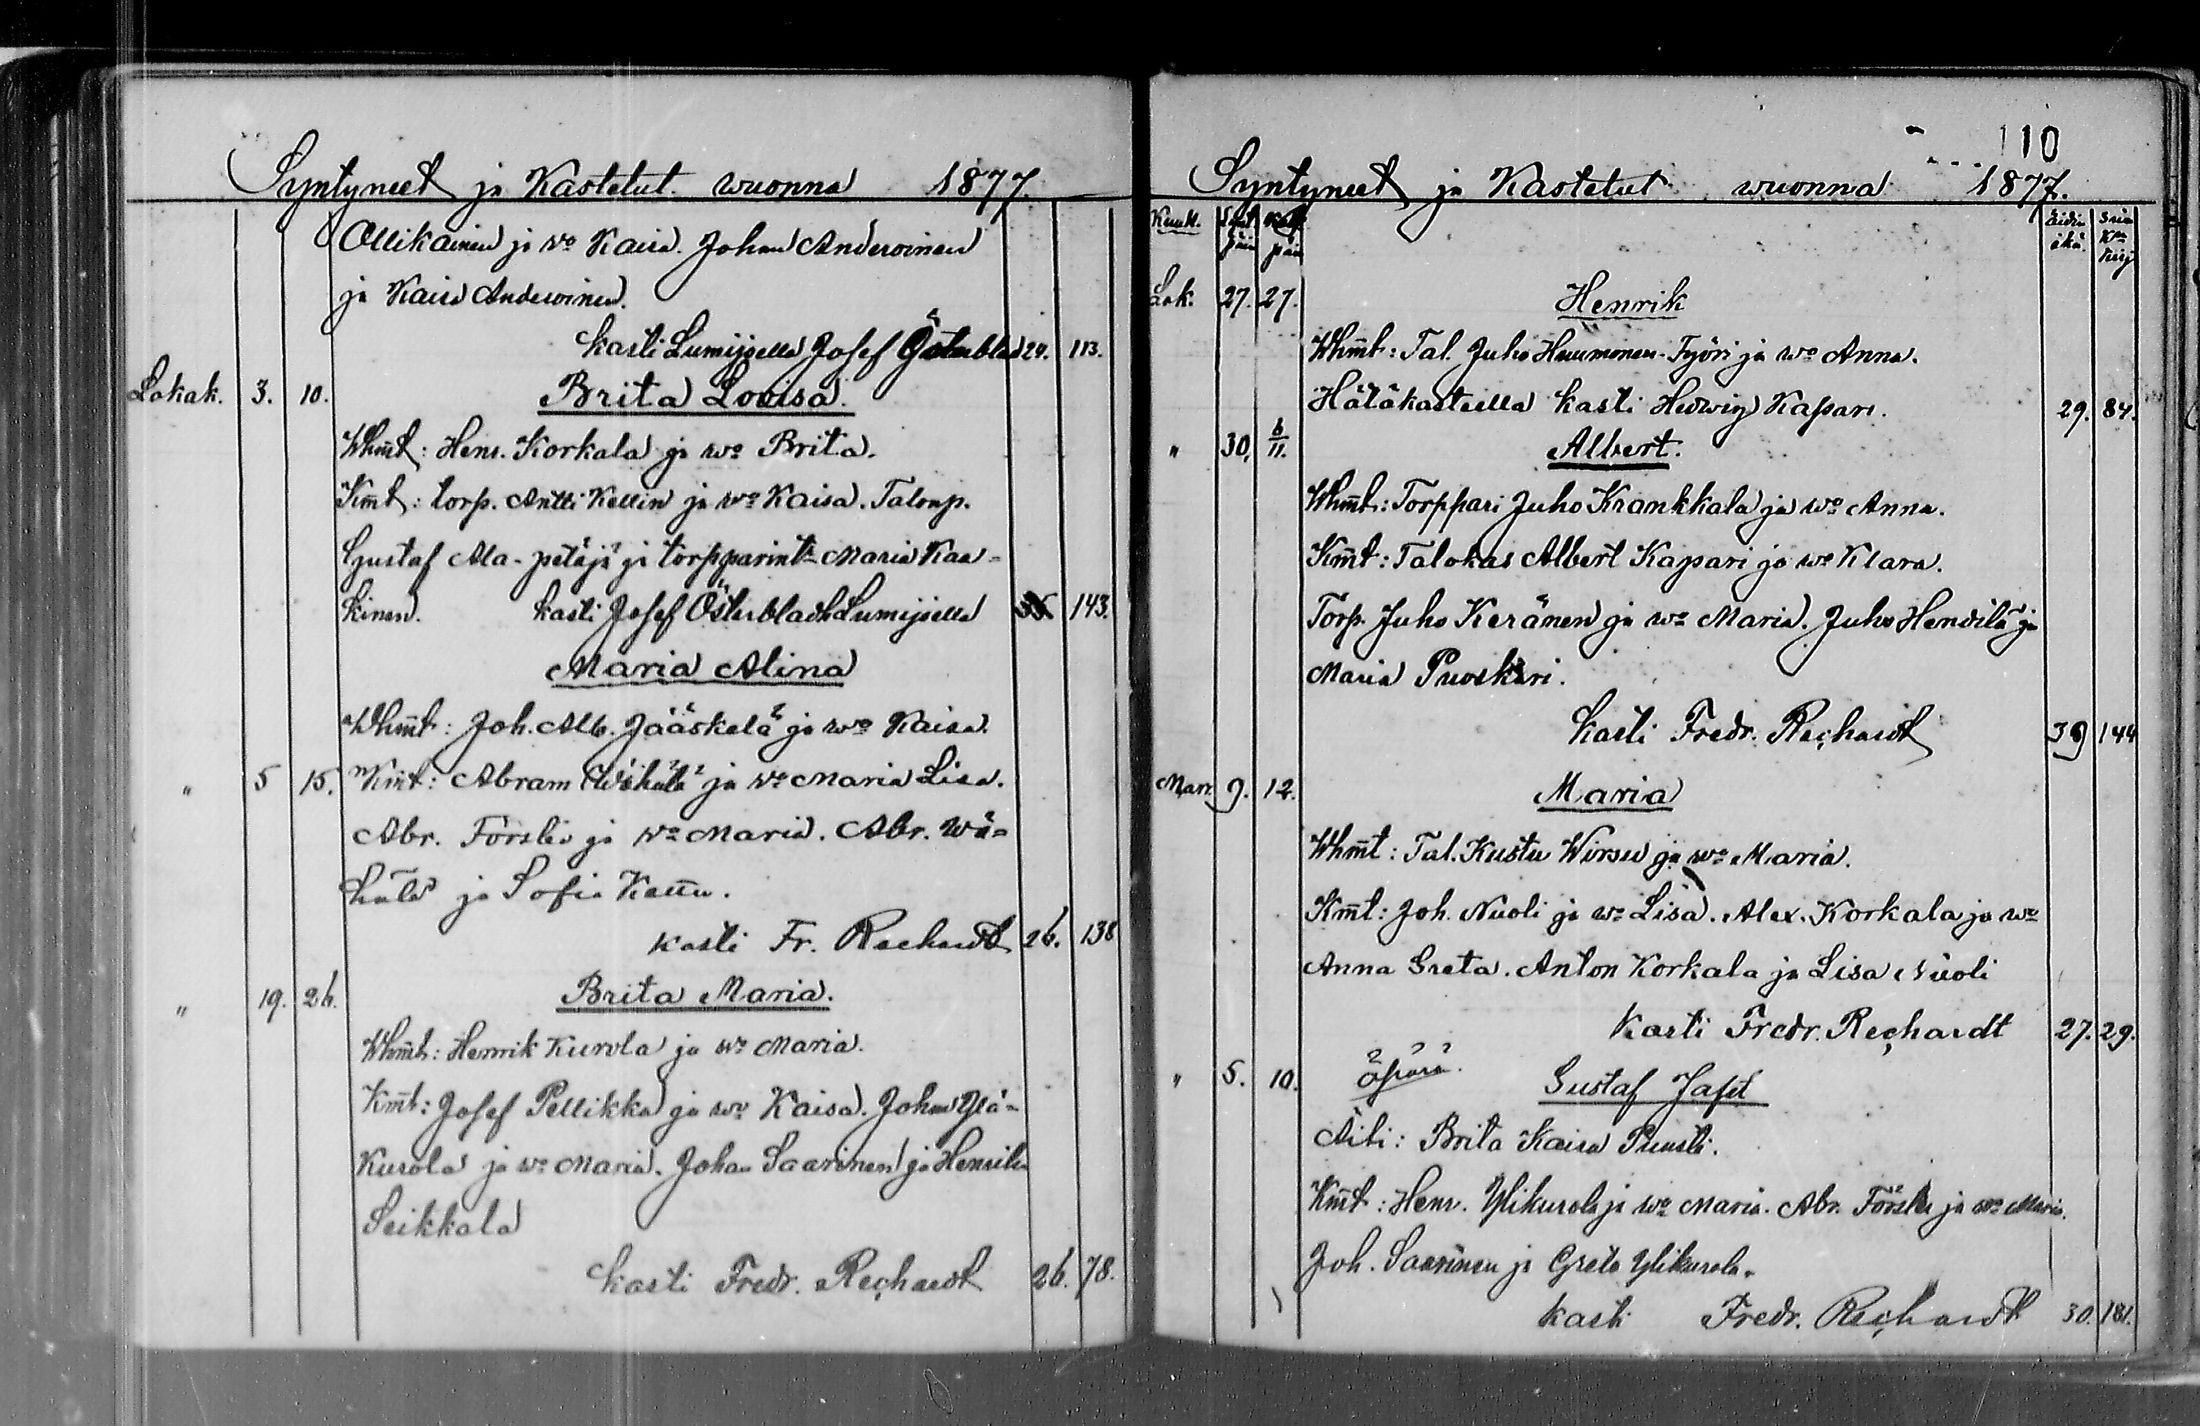 Syntyneet ja Kastetut wuonna 1877.
Ollikainen ja wo Kaisa. Johan Anderoinen
ja Kaisa Anderoinen.
kasti Lumijoella Josef Österbladh 24. 113.
Lokak. 3. 10. Brita Lovisa.
Whmt: Henr. Korkala ja wo Brita.
Kmt: torp. Antti Kellin ja wo Kaisa. Talonp.
Gustaf Ala-petäjä ja torpparint Maria Kaa-
kinen. kasti Josef Österbladh Lumijoella 143.
Maria Alina
Whmt: Joh. Alb. Jääskelä ja wo Kaisa.
" 5 15. Kmt: Abram Wähälä ja wo Maria Lisa.
Abr. Förslis ja wo Maria. Abr. Wä-
hälä ja Sofia Kattu.
kasti Fr. Rechardt 26. 138
" 19. 26. Brita Maria.
Whmt: Henrik Kurola ja wo Maria.
Kmt: Josef Pellikka ja wo Kaisa. Johan Ylä-
Kurola ja wo Maria. Johan Saarinen ja Henrika
Seikkala
kasti Fredr. Rechardt 26. 78.
110
Syntyneet ja Kastetut wuonna 1877.
Kuuk. Synt. päiv. Kast. päiv. äidin ikä. Sivu Kirj
Lok. 27. 27. Henrik
Whmt: Tal. Juho Huumonen-Työri ja wo Anna.
Hätäkasteella kasti Hedwig Kaspari. 29. 84.
" 30, 6/11. Albert.
Whmt: Torppari Juho Krankkala ja wo Anna.
Kmt: Talokas Albert Kaspari ja wo Klara.
Torp. Juho Keränen ja wo Maria. Juho Hendilä ja
Maria Puoskari.
kasti Fredr. Rechardt 39 144
Marr. 9. 12. Maria
Whmt: Tal. Kustu Wirsu ja wo Maria.
Kmt: Joh. Nuoli ja wo Lisa. Alex. Korkala ja wo
Anna Greta. Anton Korkala ja Lisa Nuoli
Kasti Fredr. Rechardt 27. 29.
" 5. 10. äpärä. Gustaf Jafet
Äiti: Brita Kaisa Puusti.
Kmt: Henr. Ylikurola ja wo Maria. Abr. Förslis ja wo Maria.
Joh. Saarinen ja Greta Ylikurola.
kasti Fredr. Rechardt 30. 181.